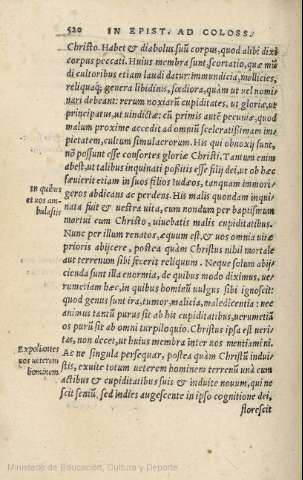 520 IN EPIST. AD COLOSS.
Christo. Habet & diabolus suũ corpus, quod alibi dixi
corpus peccati. Huius membra sunt scortatio, quæ mũ
di cultoribus etiam laudi datur: immundicia, mollicies,
reliquaq; genera libidinis, fœdiora, quàm ut uel nomi
nari debeant: rerum noxiarũ cupiditates, ut gloriæ, ut
principatus, ut uindictæ: cũ primis autẽ pecuniæ, quod
malum proxime accedit ad omniũ sceleratissimam im
pietatem, cultum simulacrorum. His qui obnoxij sunt,
nõ possunt esse consortes gloriæ Christi. Tantum enim
abest, ut talibus inquinati possitis esse filij dei, ut ob hæc
sæuierit etiam in suos filios Iudæos, tanquam immori
geros abdicans ac perdens. His malis quondam inqui
In quibus
et uos am-
bulastis
nata fuit & uestra uita, cum nondum per baptismum
mortui cum Christo, uiuebatis malis cupiditatibus.
Nunc per illum renatos, æquum est, & uos omnia uitæ
prioris abijcere, postea quàm Christus nihil mortale
aut terrenum sibi fecerit reliquum. Neque solum abij
cienda sunt illa enormia, de quibus modo diximus, uer
rumetiam hæc, in quibus hominũ uulgus sibi ignoscit:
quod genus sunt ira, tumor, malicia, maledicentia: nec
animus tantũ purus sit ab his cupiditatibus, uerumetiã
os purũ sit ab omni turpiloquio. Christus ipsa est ueri-
tas, non decet, ut huius membra inter nos mentiamini.
Expoliantes
uos ueterem
hominem
Ac ne singula persequar, postea quàm Christũ indui-
stis, exuite totum ueterem hominem terrenũ unà cum
actibus & cupiditatibus suis & induite nouum, qui ne
scit seniũ, sed indies augescente in ipso cognitione dei,
florescit
Ministerio de Educación, Cultura y Deporte